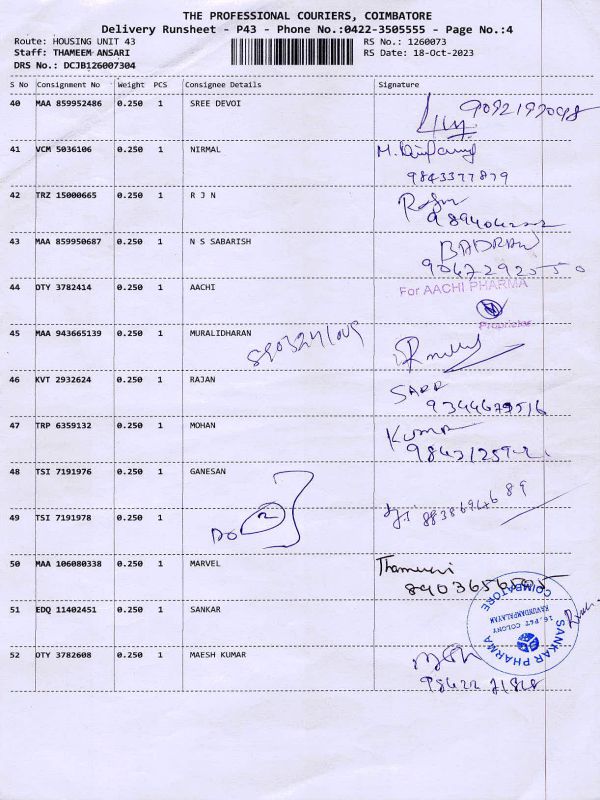 THE PROFESSIONAL COURIERS, COIMBATORE
Delivery Runsheet - P43 - Phone No.:0422-3505555 - Page No.:4
Route: HOUSING UNIT 43 RS No.: 1260073
Staff: THAMEEM ANSARI RS Date: 18-Oct-2023
DRS No.: DCJB126007304
S No Consignment No Weight PCS Consignee Details Signature
40 MAA 859952486 0.250 1 SREE DEVOI
41 VCM 5036106 0.250 1 NIRMAL
9843377879
42 TRZ 15000665 0.250 1 R J N
43 MAA 859950687 0.250 1 N S SABARISH BADRAN
9067292550
44 OTY 3782414 0.250 1 AACHI For AACHI PHARMA
Proprietor
45 MAA 943665139 0.250 1 MURALIDHARAN
46 KVT 2932624 0.250 1 RAJAN
47 TRP 6359132 0.250 1 MOHAN KUMAR
48 TSI 7191976 0.250 1 GANESAN
DO 2
49 TSI 7191978 0.250 1
50 MAA 106080338 0.250 1 MARVEL
51 EDQ 11402451 0.250 1 SANKAR
SANKAR PHARMA
16, P&T COLONY
KAVUNDAMPALAYAM
COIMBATORE
52 OTY 3782608 0.250 1 MAESH KUMAR